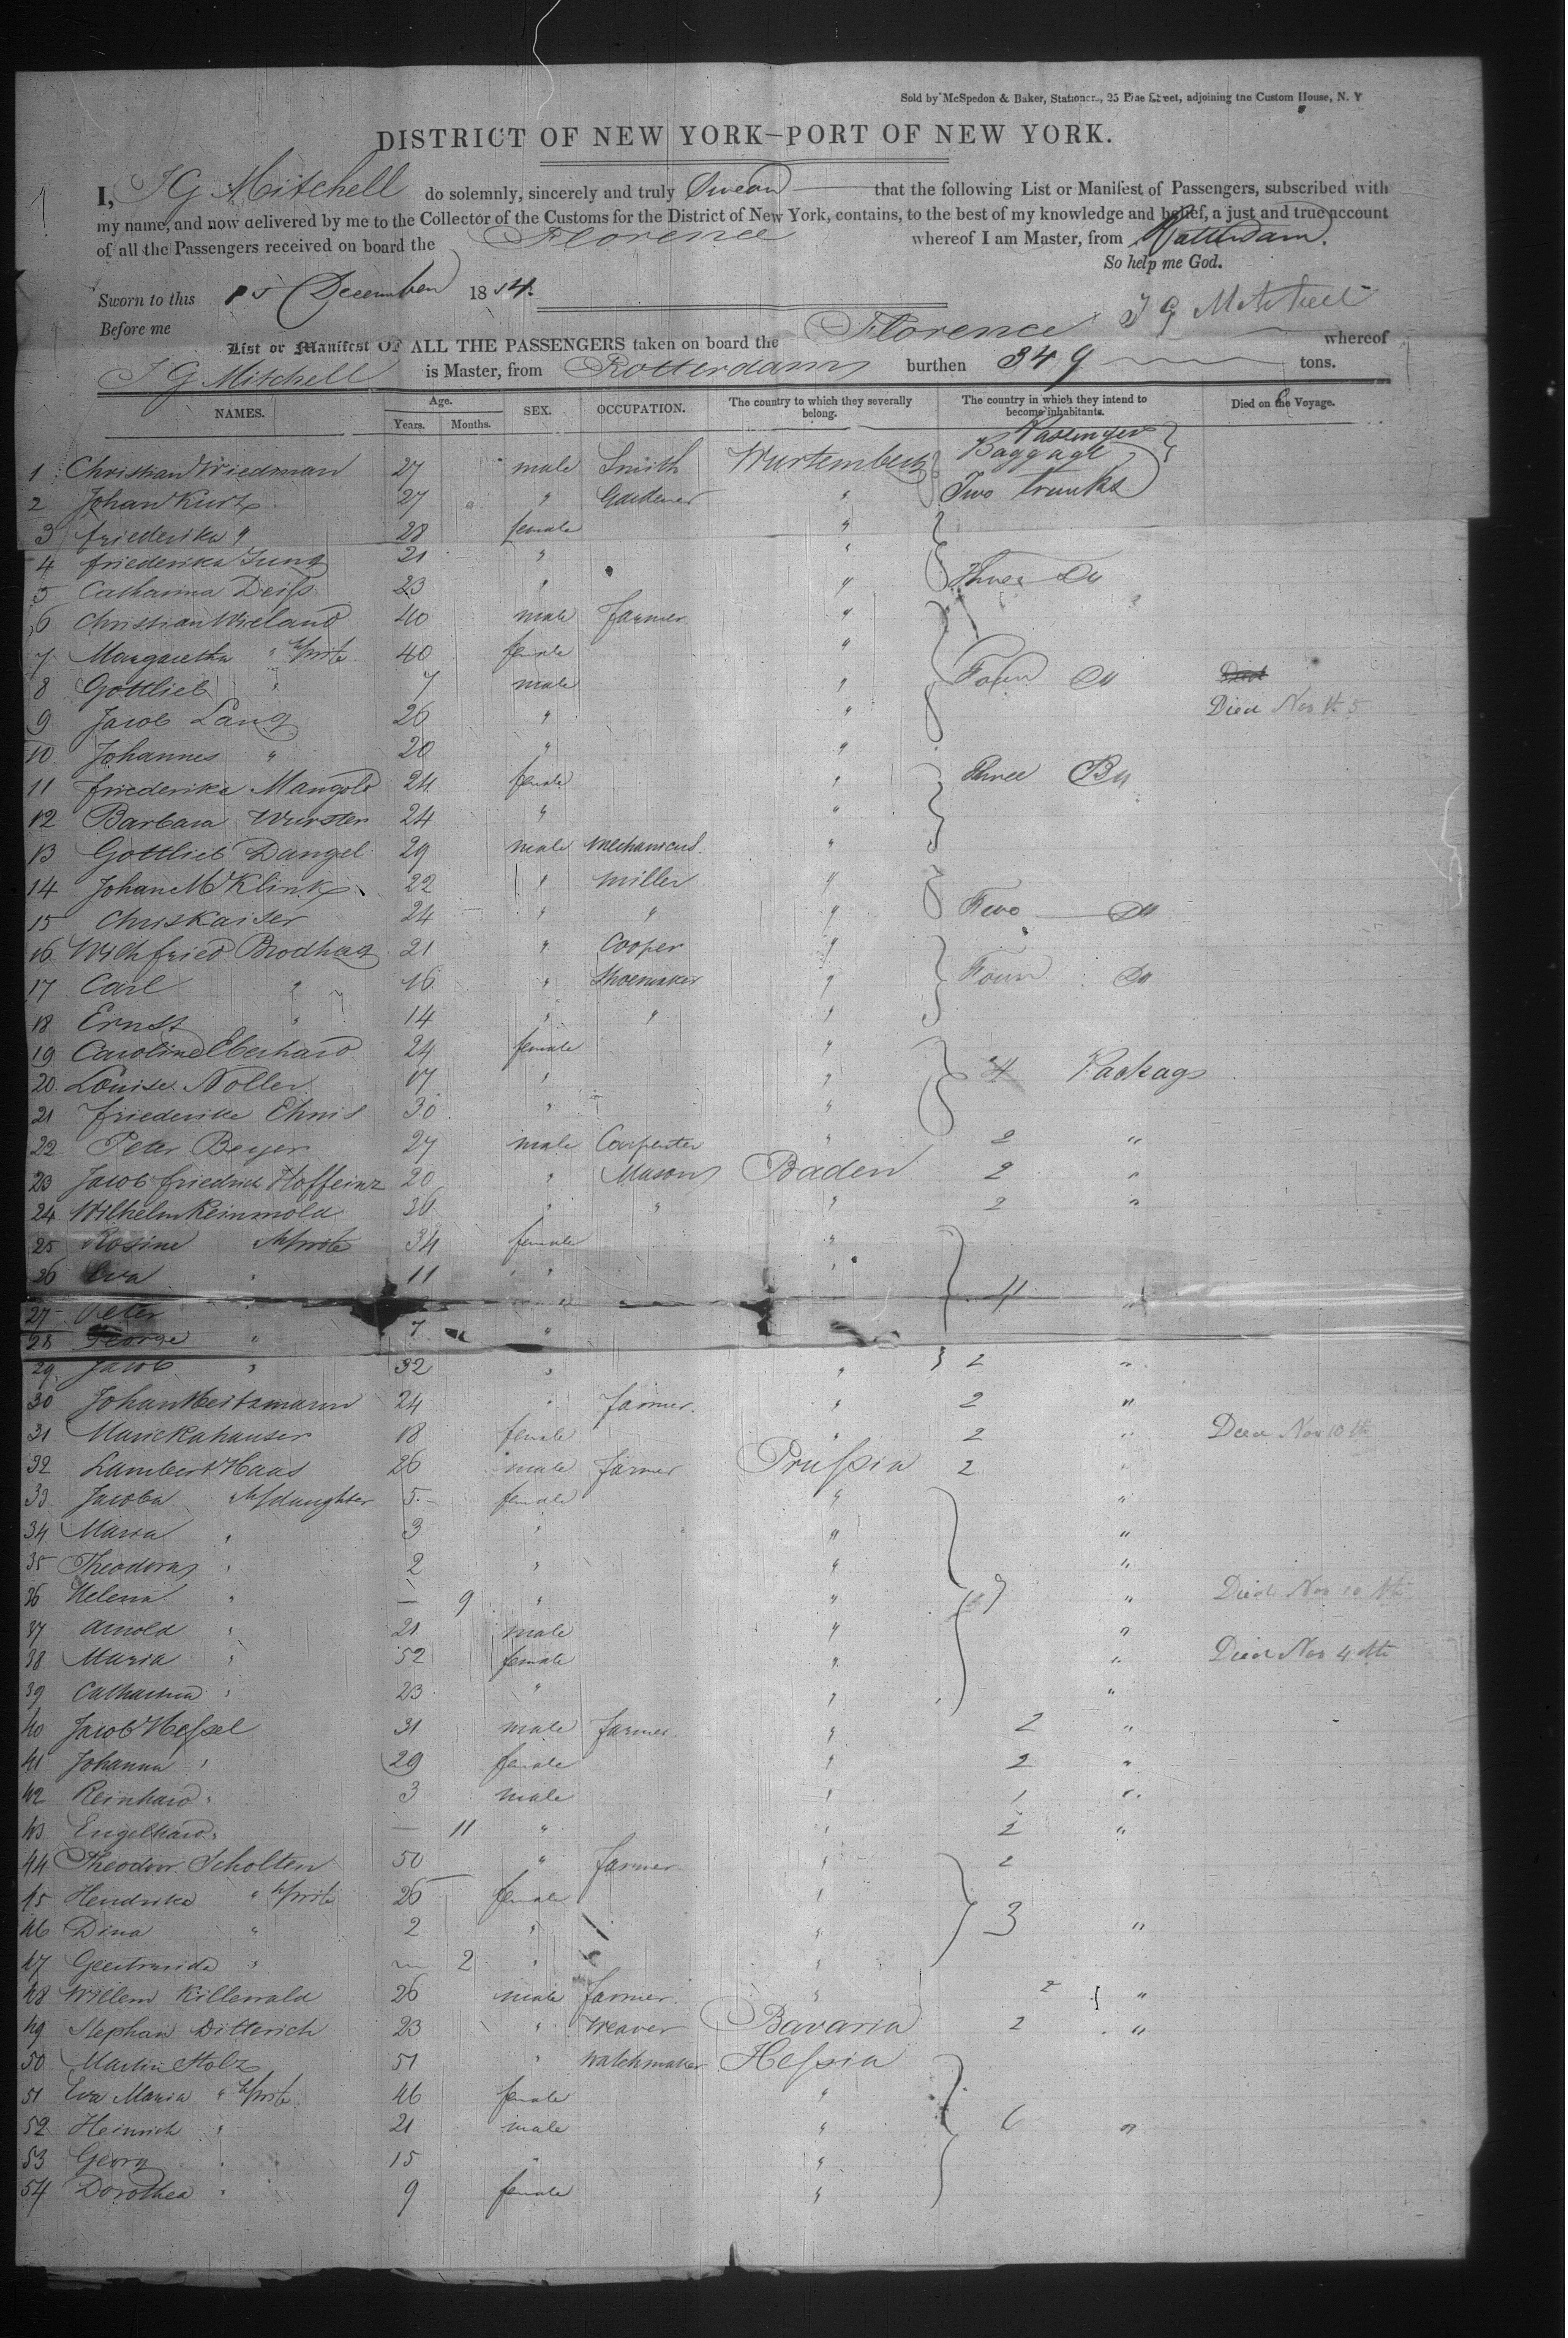 Sold by McSpedon & Baker, Stationers, 25 Pine Street, adjoining the Custom House, N. Y
DISTRICT OF NEW YORK—PORT OF NEW YORK.
I, J G Mitchell do solemnly, sincerely and truly Swear that the following List or Manifest of Passengers, subscribed with
my name, and now delivered by me to the Collector of the Customs for the District of New York, contains, to the best of my knowledge and belief, a just and true account
of all the Passengers received on board the Florence whereof I am Master, from Rotterdam.
So help me God.
Sworn to this 15 December 1854.
J G Mitchell
Before me
List or Manifest OF ALL THE PASSENGERS taken on board the Florence whereof
J G Mitchell is Master, from Rotterdam burthen 349 tons.
NAMES. Age. Years. Months. SEX. OCCUPATION. The country to which they severally belong. The country in which they intend to become inhabitants. Died on the Voyage.
Passengers
1 Christian Wiedman 27 male Smith Wurtemberg Baggage
2 Johan Kurtz 27 " Gardener " Two trunks
3 friederika " 28 female "
4 friederika Jung 21 " "
5 Catharina Deiss 23 " " Three Do
6 Christian Wieland 40 male farmer "
7 Margaretha " wife 40 female "
8 Gottlieb " 7 male " Four Do Died
9 Jacob Lang 26 " " Died Nov th 5
10 Johannes " 20 " "
11 friederike Mangold 24 female " Three Do
12 Barbara Wurster 24 " "
13 Gottlieb Dangel 29 male mechanicus. "
14 Johan M Klink 22 " miller "
15 Chris Kaiser 24 " " " Two Do
16 Brodhag 21 " Cooper "
17 Carl " 16 " Shoemaker " Four Do
18 Ernst " 14 " " "
19 Caroline Eberhard 24 female "
20 Louise Noller 17 " " 4 Packags
21 friederike Ehnis 30 " "
22 Peter Beyer 27 male Carpenter " 2 "
23 Jacob friedrich Hoffeinz 20 " Mason Baden 2 "
24 Wilhelm Reinmold 36 " " " 2 "
25 Rosine wife 34 female "
26 Eva " 11 " "
27 Peter " 4 "
28 George " 7 "
29 Jacob " 32 " " 2 "
30 Johan 24 " farmer. " 2 "
31 18 female " 2 " Died Nov 10 th
32 Lambert Haas 26 male farmer Prussia 2 "
33 Jacoba daughter 5 female " "
34 Maria " 3 " " "
35 Theodora " 2 " " "
36 Helena " — 9 " " 9 " Died Nov 10 th
37 Arnold " 21 male " "
38 Maria " 52 female " " Died Nov 4 th
39 Catharina " 23 " " "
40 Jacob Hessel 31 male farmer. " 2 "
41 Johanna " 29 female " 2 "
42 Reinhard " 3 male " 1 "
43 Engelhard " — 11 " " 2 "
44 Theodoor Scholten 50 " farmer " 2
45 Hendrika " wife 26 female "
46 Dina " 2 " " 3 "
47 Geertruida " — 2 " "
48 Willem Killewald 26 male farmer. " 2 "
49 Stephan Ditterich 23 " weaver Bavaria 2 "
50 Martin Stolz 51 " watchmaker Hessia
51 Eva Maria " wife 46 female "
52 Heinrich " 21 male " 6 "
53 Georg " 15 " "
54 Dorothea " 9 female "